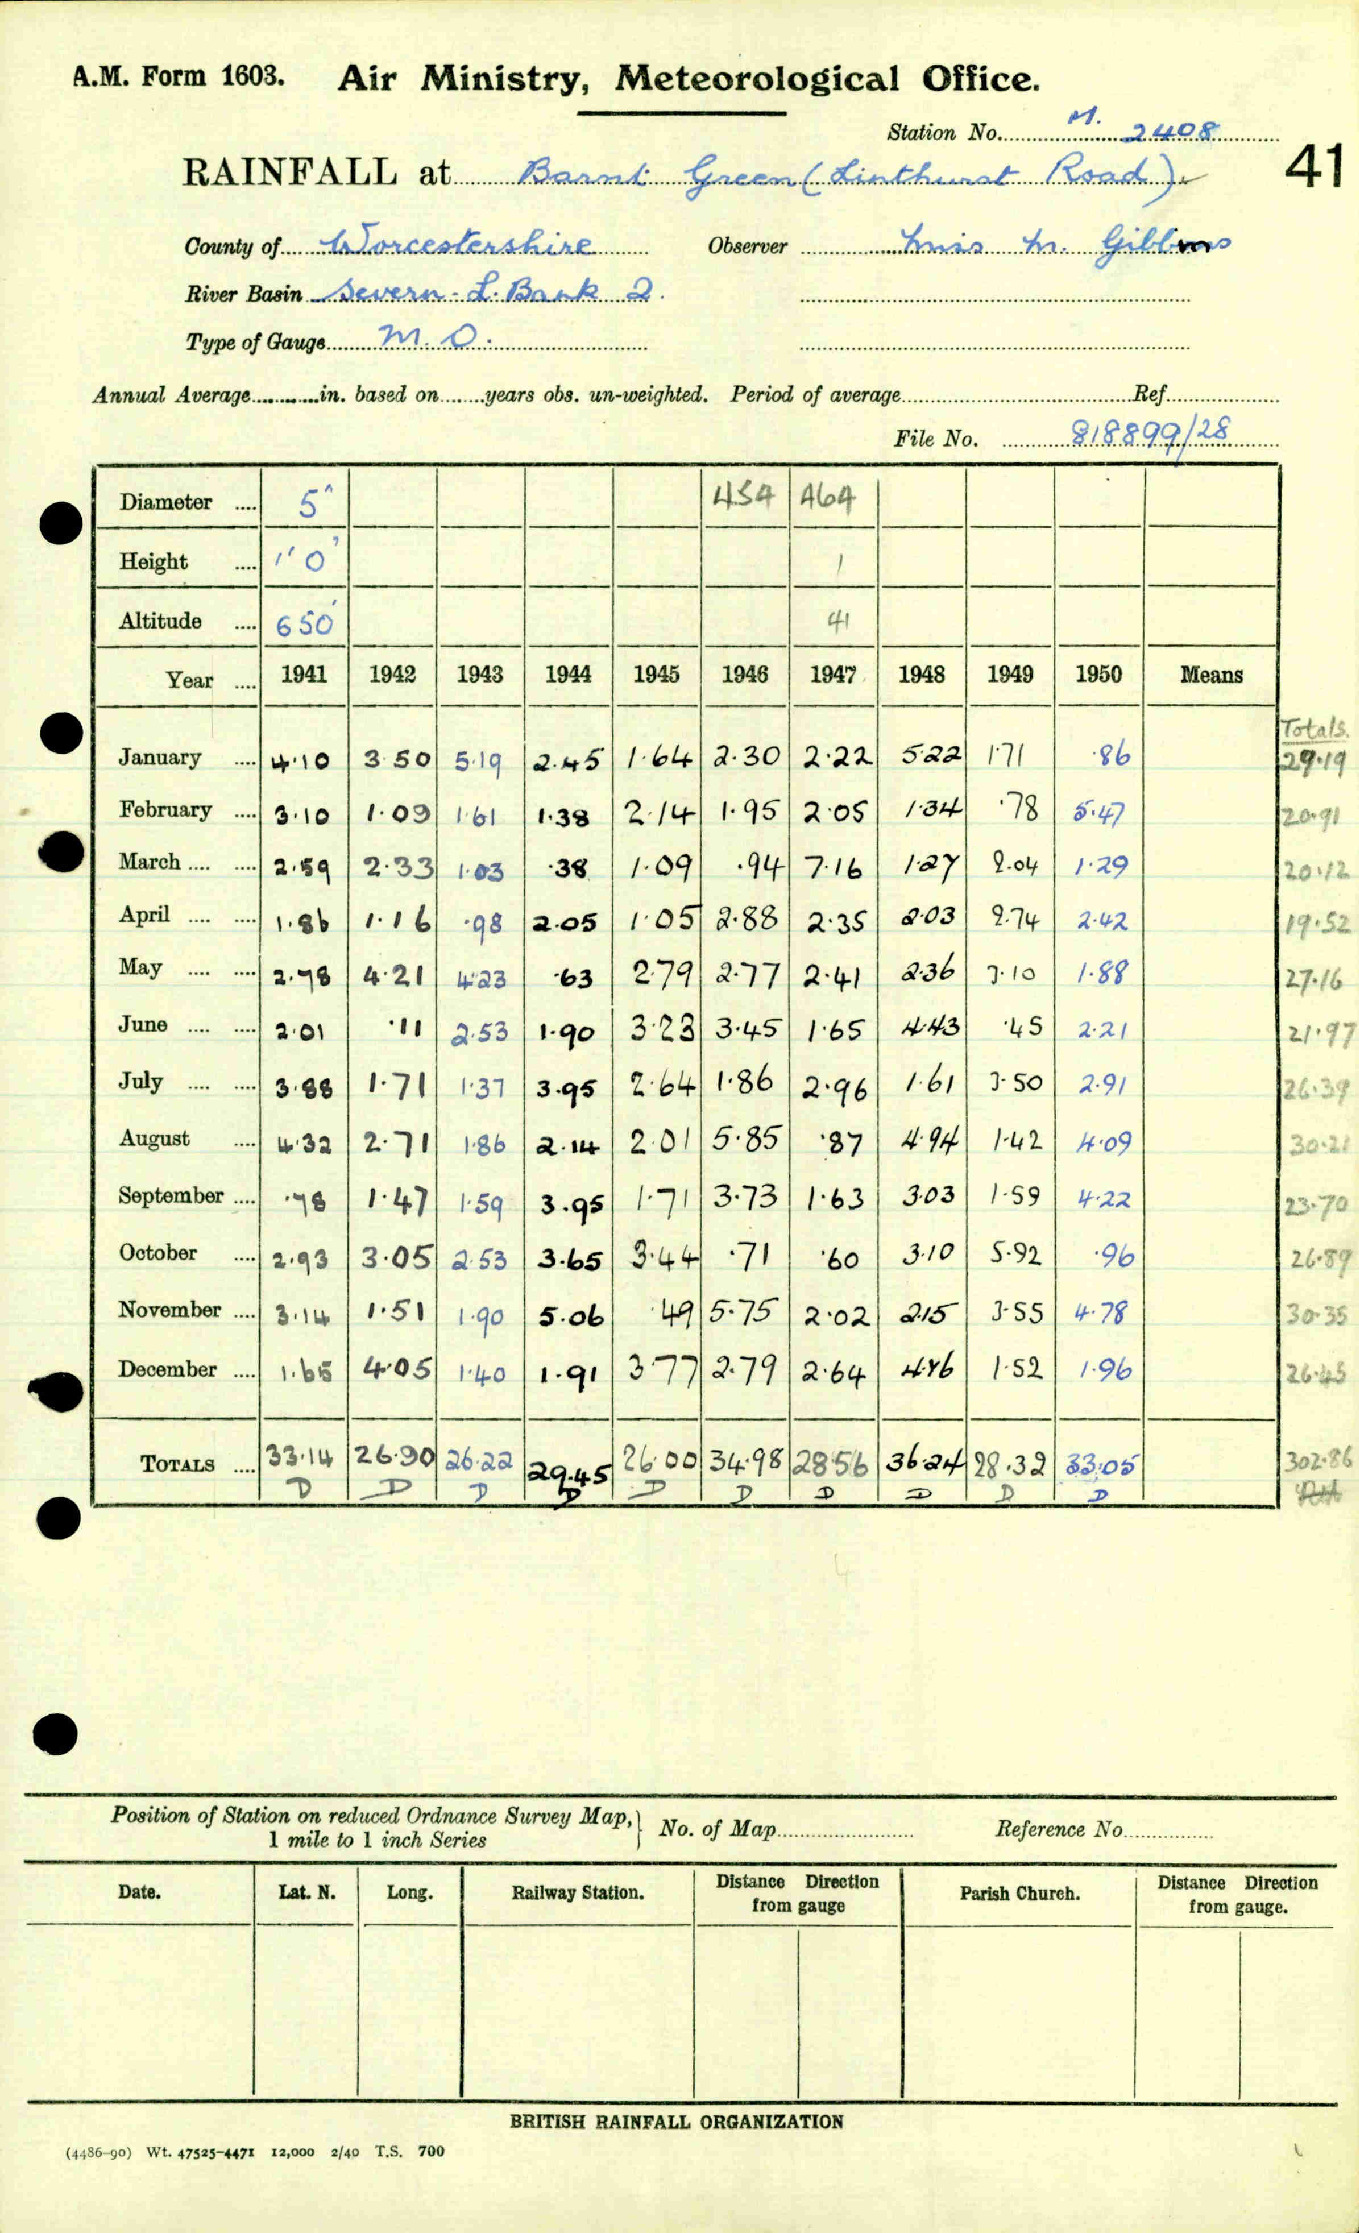 A.M. Form 1603. Air Ministry, Meteorological Office.
Station No. M. 2408
41
RAINFALL at Barnt Green (Linthurst Road)
County of Worcestershire Observer Miss M. Gibbins
River Basin Severn - L. Bank 2.
Type of Gauge M.O.
Annual Average in. based on years obs. un-weighted. Period of average Ref.
File No. 818899/28
Diameter 5" 454 464
Height 1'0" 1
Altitude 650' 41
Year 1941 1942 1943 1944 1945 1946 1947 1948 1949 1950 Means
Totals.
January 4.10 3.50 5.19 2.45 1.64 2.30 2.22 5.22 1.71 .86 29.19
February 3.10 1.09 1.61 1.38 2.14 1.95 2.05 1.34 .78 5.47 20.91
March 2.59 2.33 1.03 .38 1.09 .94 7.16 1.27 2.04 1.29 20.12
April 1.86 1.16 .98 2.05 1.05 2.88 2.35 2.03 2.74 2.42 19.52
May 2.78 4.21 4.23 .63 2.79 2.77 2.41 2.36 3.10 1.88 27.16
June 2.01 .11 2.53 1.90 3.23 3.45 1.65 4.43 .45 2.21 21.97
July 3.88 1.71 1.37 3.95 2.64 1.86 2.96 1.61 3.50 2.91 26.39
August 4.32 2.71 1.86 2.14 2.01 5.85 .87 4.94 1.42 4.09 30.21
September .78 1.47 1.59 3.95 1.71 3.73 1.63 3.03 1.59 4.22 23.70
October 2.93 3.05 2.53 3.65 3.44 .71 .60 3.10 5.92 .96 26.89
November 3.14 1.51 1.90 5.06 .49 5.75 2.02 2.15 3.55 4.78 30.35
December 1.65 4.05 1.40 1.91 3.77 2.79 2.64 4.76 1.52 1.96 26.45
TOTALS 33.14 26.90 26.22 29.45 26.00 34.98 28.56 36.24 28.32 33.05 302.86
D D D D D D D D D D
Position of Station on reduced Ordnance Survey Map,
1 mile to 1 inch Series
No. of Map Reference No.
Date. Lat. N. Long. Railway Station. Distance Direction from gauge Parish Church. Distance Direction from gauge.
BRITISH RAINFALL ORGANIZATION
(4486-90) Wt. 47525-4471 12,000 2/40 T.S. 700